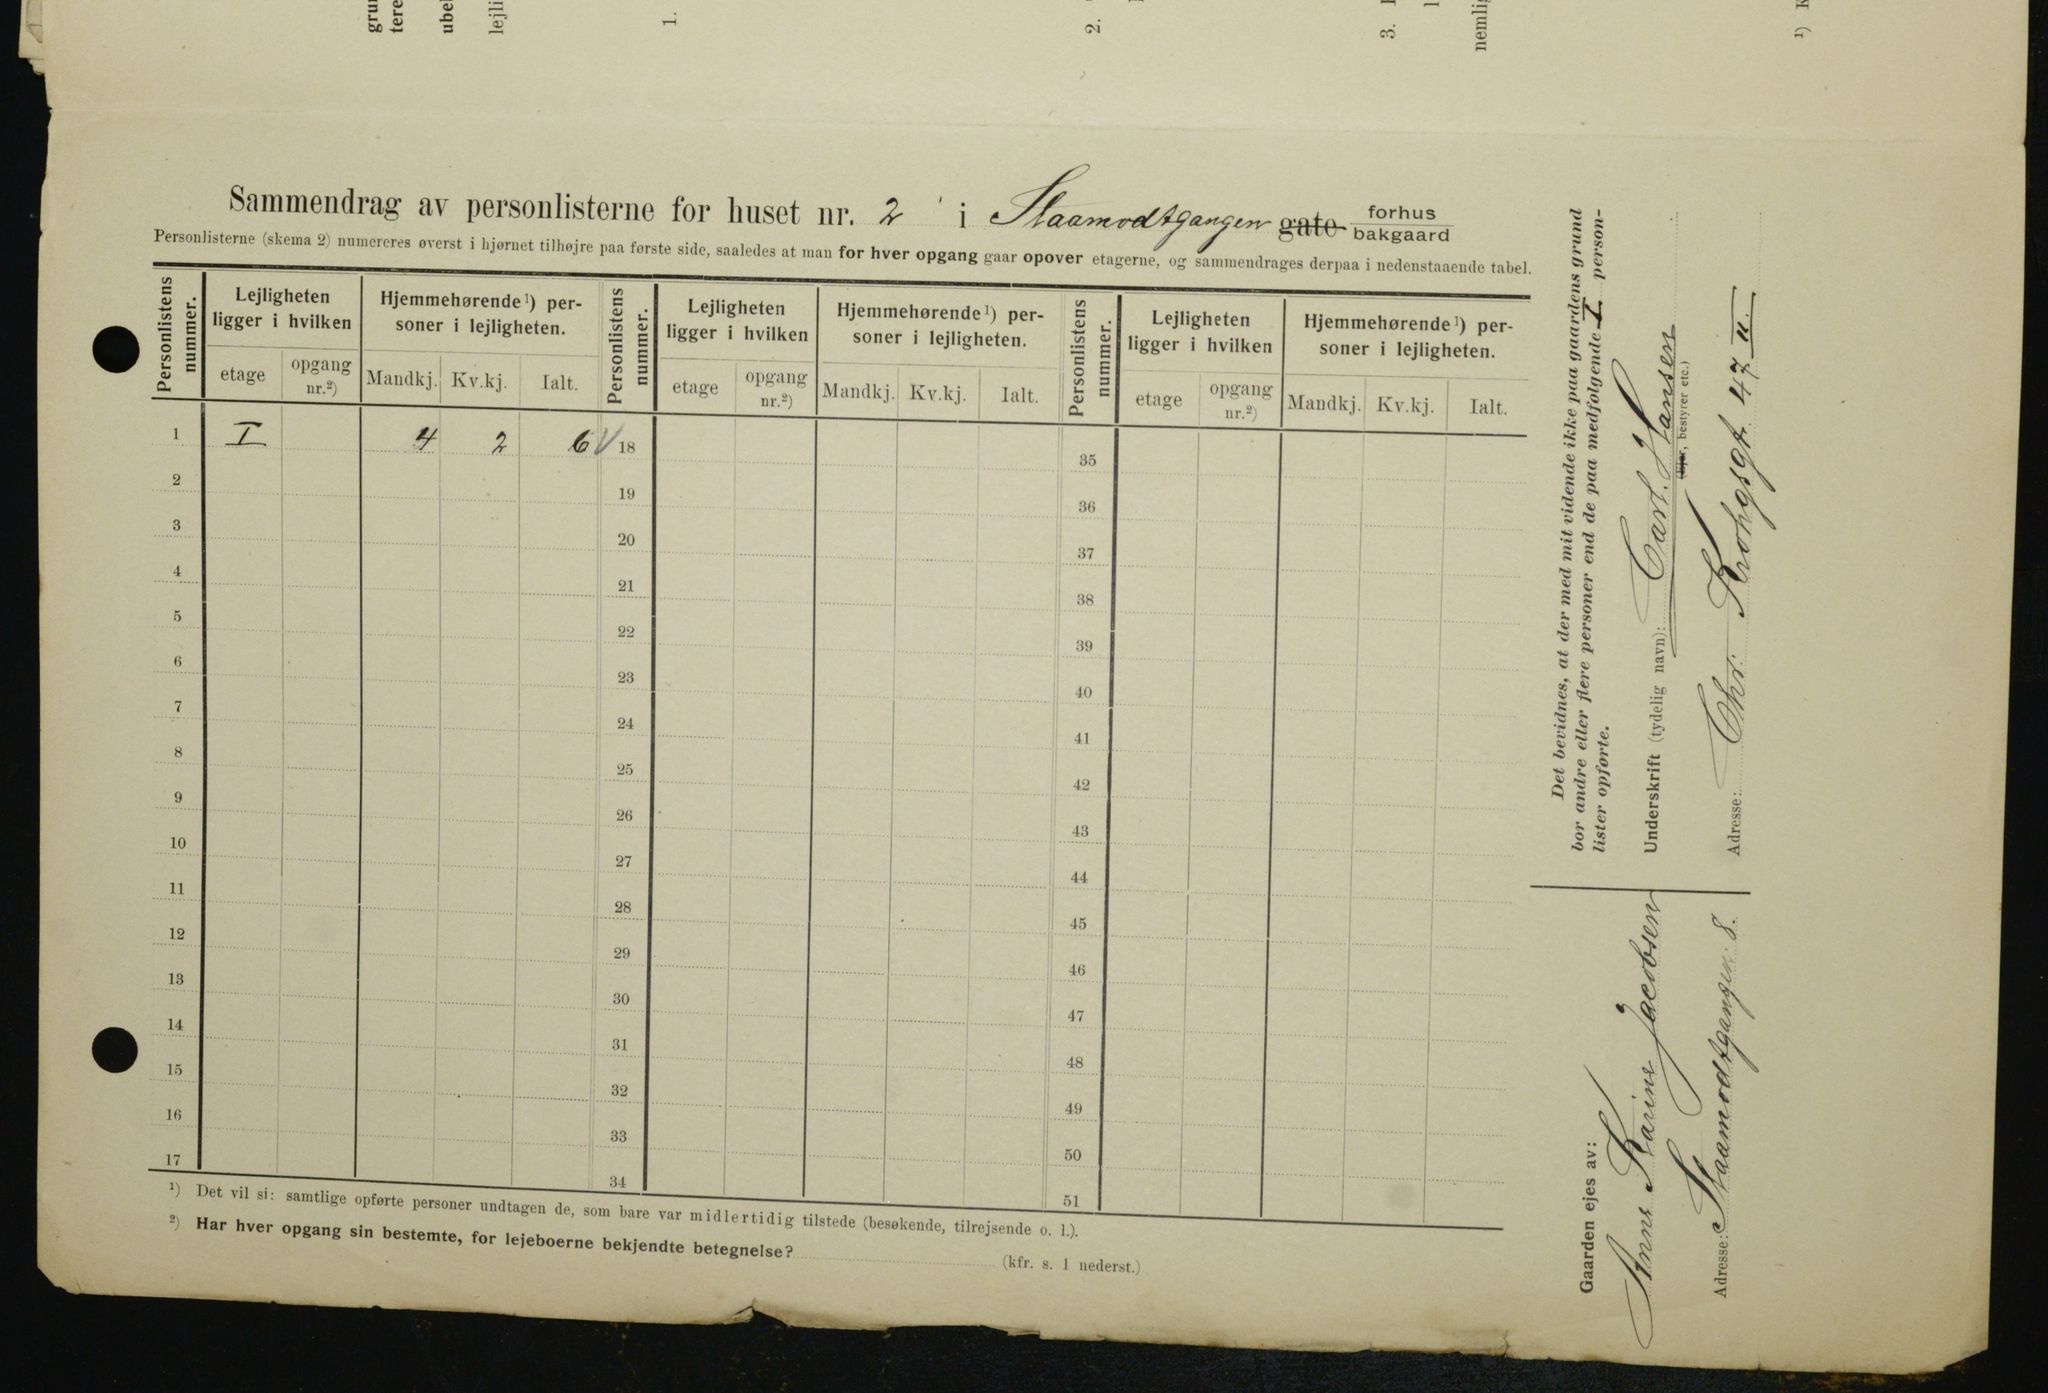 grun
tere
ubel
lejli
1.
2.
3.
nemlig
¹) K
Sammendrag av personlisterne for huset nr. 2 i Staamodtgangen gate forhus bakgaard
Personlisterne (skema 2) numereres øverst i hjørnet tilhøjre paa første side, saaledes at man for hver opgang gaar opover etagerne, og sammendrages derpaa i nedenstaaende tabel.
Personlistens nummer. Lejligheten ligger i hvilken Hjemmehørende¹) personer i lejligheten. Personlistens nummer. Lejligheten ligger i hvilken Hjemmehørende¹) personer i lejligheten. Personlistens nummer. Lejligheten ligger i hvilken Hjemmehørende¹) personer i lejligheten.
etage opgang nr.²) Mandkj. Kv.kj. Ialt. etage opgang nr.²) Mandkj. Kv.kj. Ialt. etage opgang nr.²) Mandkj. Kv.kj. Ialt.
1 I 4 2 6 √ 18 35
2 19 36
3 20 37
4 21 38
5 22 39
6 23 40
7 24 41
8 25 42
9 26 43
10 27 44
11 28 45
12 29 46
13 30 47
14 31 48
15 32 49
16 33 50
17 34 51
¹) Det vil si: samtlige opførte personer undtagen de, som bare var midlertidig tilstede (besøkende, tilrejsende o. l.).
²) Har hver opgang sin bestemte, for lejeboerne bekjendte betegnelse? (kfr. s. 1 nederst.)
Det bevidnes, at der med mit vidende ikke paa gaardens grund
bor andre eller flere personer end de paa medfølgende I person-
lister opførte.
Underskrift (tydelig navn): Carl. Hansen
(Ejer, bestyrer etc.)
Adresse: Chr. Krohgsgt 47 II.
Gaarden ejes av:
Anne Karine Jacobsen
Adresse: Staamodtgangen 8.